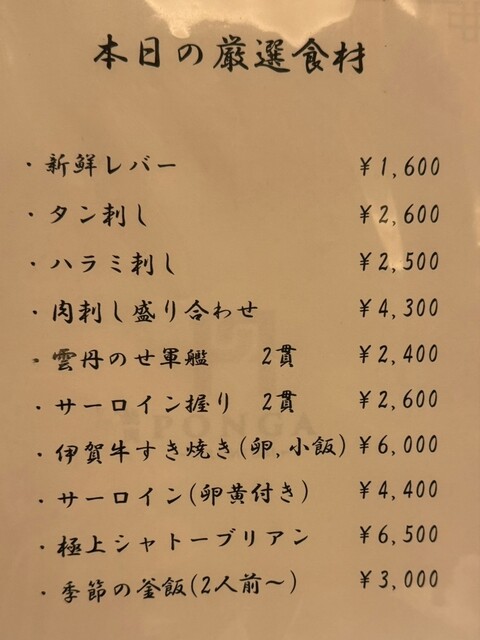 本日の厳選食材
・新鮮レバー ¥1,600
・タン刺し ¥2,600
・ハラミ刺し ¥2,500
・肉刺し盛り合わせ ¥4,300
・雲丹のせ軍艦 2貫 ¥2,400
・サーロイン握り 2貫 ¥2,600
・伊賀牛すき焼き(卵,小飯) ¥6,000
・サーロイン(卵黄付き) ¥4,400
・極上シャトーブリアン ¥6,500
・季節の釜飯(2人前〜) ¥3,000
PONGA